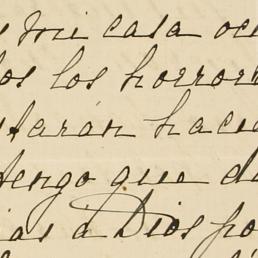 mi casa oc
los los horror
starán hacie
tengo que d
ias á Dios po